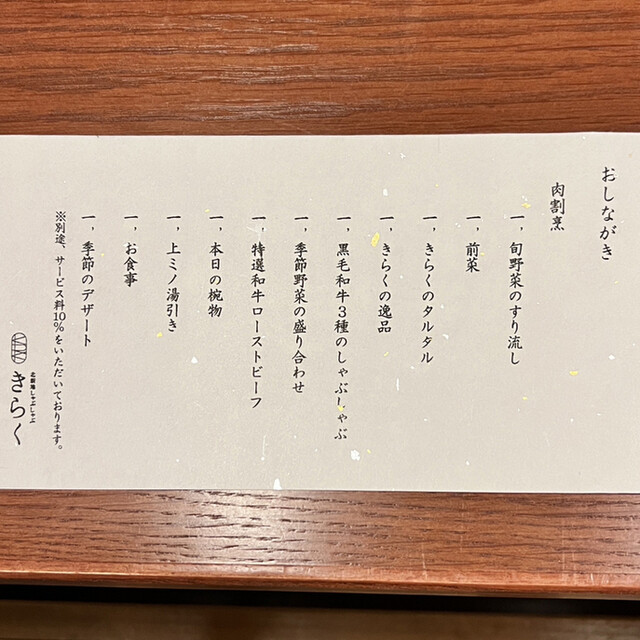 おしながき
肉割烹
一、旬野菜のすり流し
一、前菜
一、きらくのタルタル
一、きらくの逸品
一、黒毛和牛3種のしゃぶしゃぶ
一、季節野菜の盛り合わせ
一、特選和牛ローストビーフ
一、本日の椀物
一、上ミノ湯引き
一、お食事
一、季節のデザート
※別途、サービス料10%をいただいております。
しゃぶしゃぶ
きらく